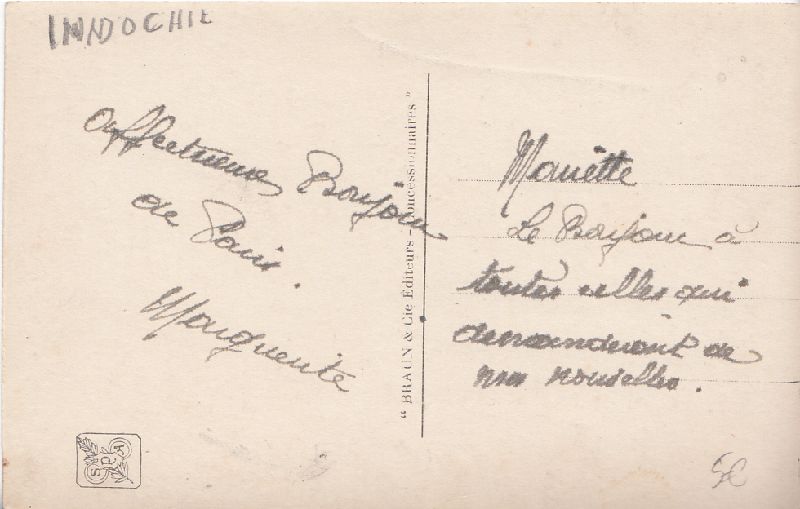 INDOCHIE
Affectueux Bonjour
de Paris.
Marguerite
" BRAUN & Cie Editeurs - Concessionnaires "
Mariette
Le Bonjour à
toutes celles qui
demanderont de
mes nouvelles.
SPA